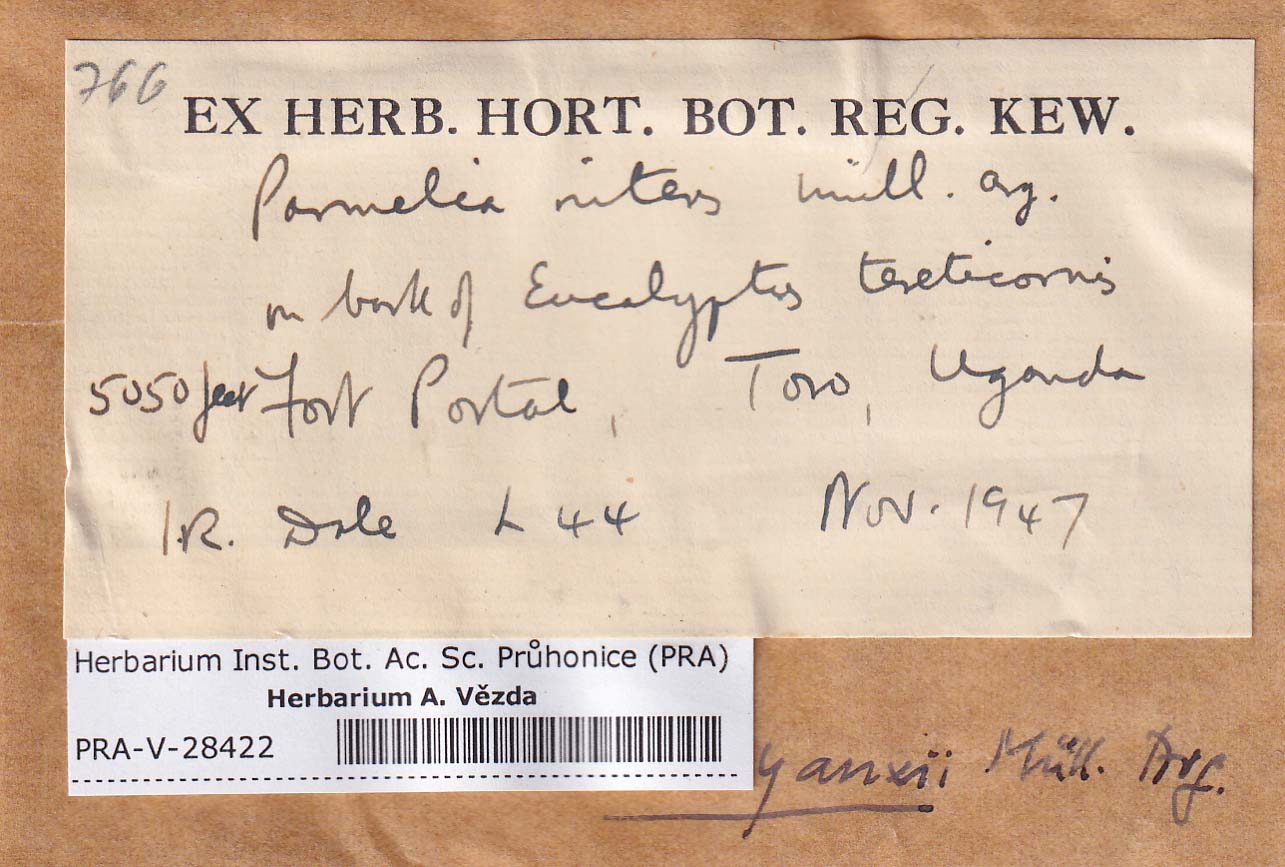 766
EX HERB. HORT. BOT. REG. KEW.
Parmelia nitens Müll. Arg.
on bark of Eucalyptus tereticornis
5050 feet Fort Portal, Toro, Uganda
I.R. Dale L 44 Nov. 1947
Herbarium Inst. Bot. Ac. Sc. Průhonice (PRA)
Herbarium A. Vězda
PRA-V-28422
Müll. Arg.